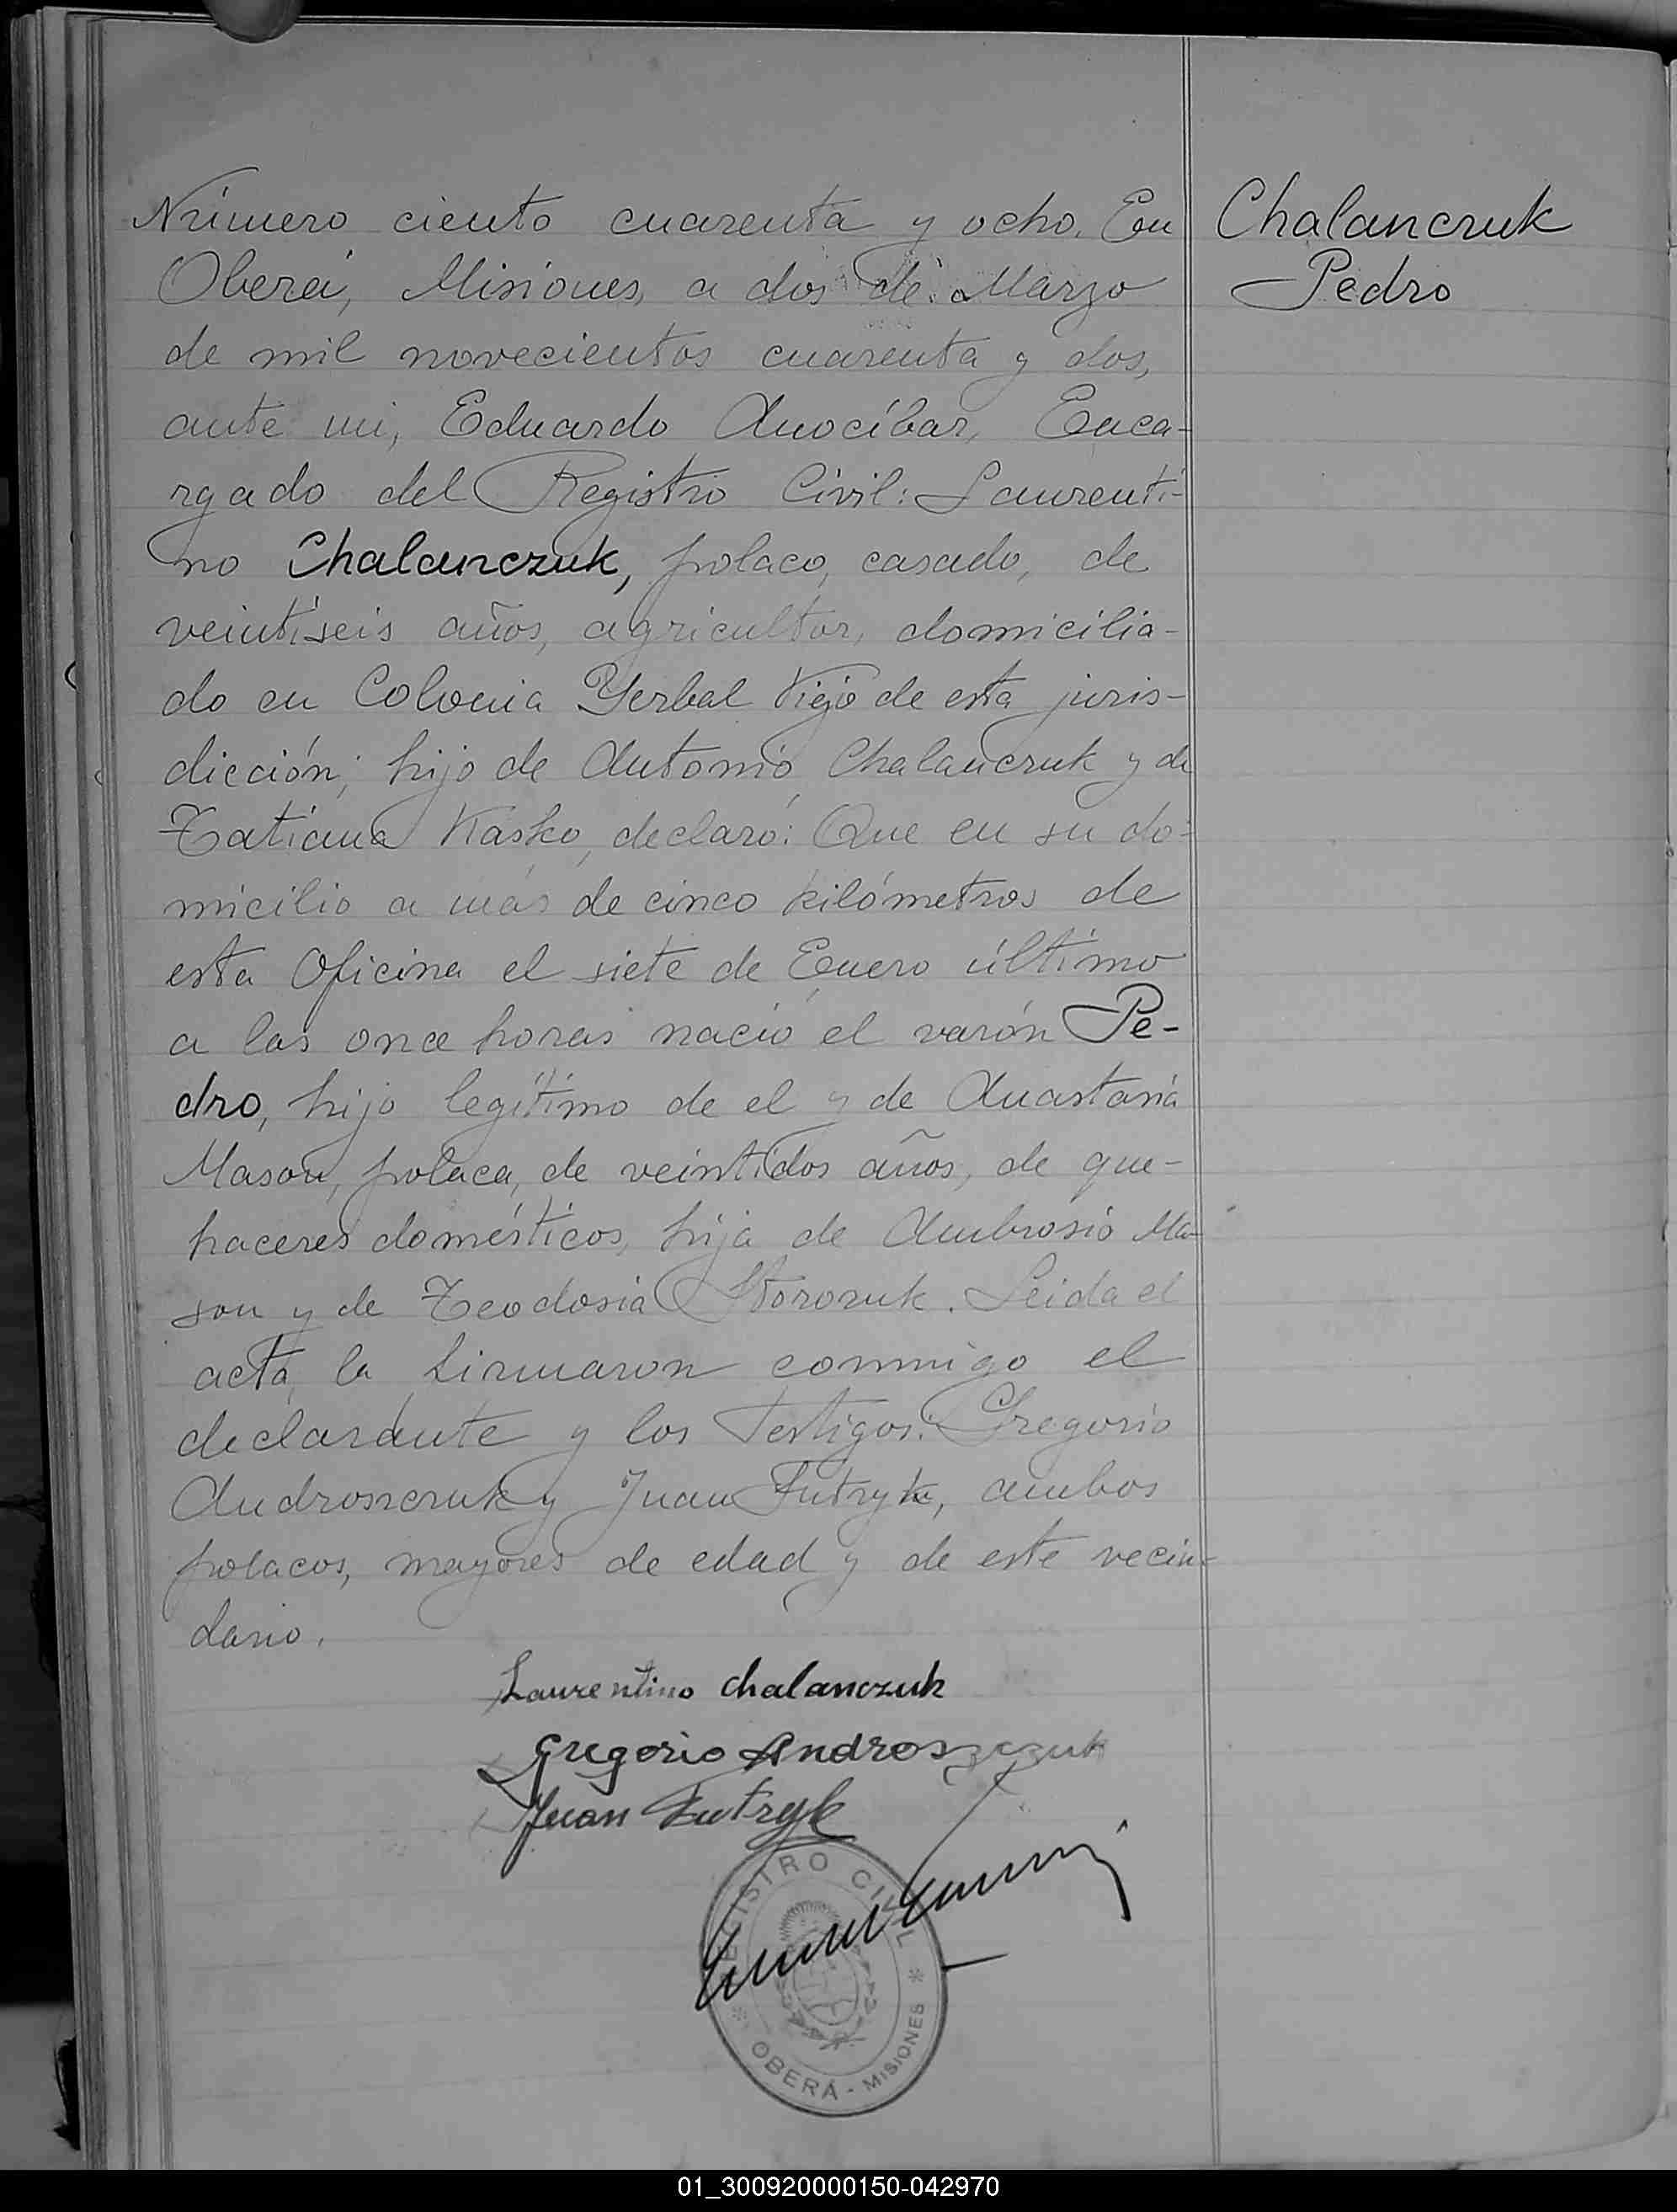 Número ciento cuarenta y ocho. En
Oberá, Misiones, a dos de Marzo
de mil novecientos cuarenta y dos,
ante mi, Eduardo Anocíbar, Enca-
rgado del Registro Civil: Laurenti-
no Chalanczuk, polaco, casado, de
veintiseis años, agricultor, domicilia-
do en Colonia Yerbal Viejo de esta juris-
dicción; hijo de Antonio Chalanczuk y de
Tatiana Kasko, declaró: Que en su do-
micilio a más de cinco kilómetros de
esta Oficina el siete de Enero último
a las once horas nació el varón Pe-
dro, hijo legítimo de el y de Anastasia
Mason, polaca, de veintidos años, de que-
haceres domésticos, hija de Ambrosio Ma-
son y de Teodosia Storozuk. Leida el
acta, la firmaron conmigo el
declarante y los testigos: Gregorio
Androszczuk y Juan Futryk, ambos
polacos, mayores de edad y de este vecin-
dario.
Chalanczuk
Pedro
Laurentino Chalanczuk
Gregorio Androszczuk
Juan Futryk
REGISTRO CIVIL
OBERÁ - MISIONES
01_300920000150-042970